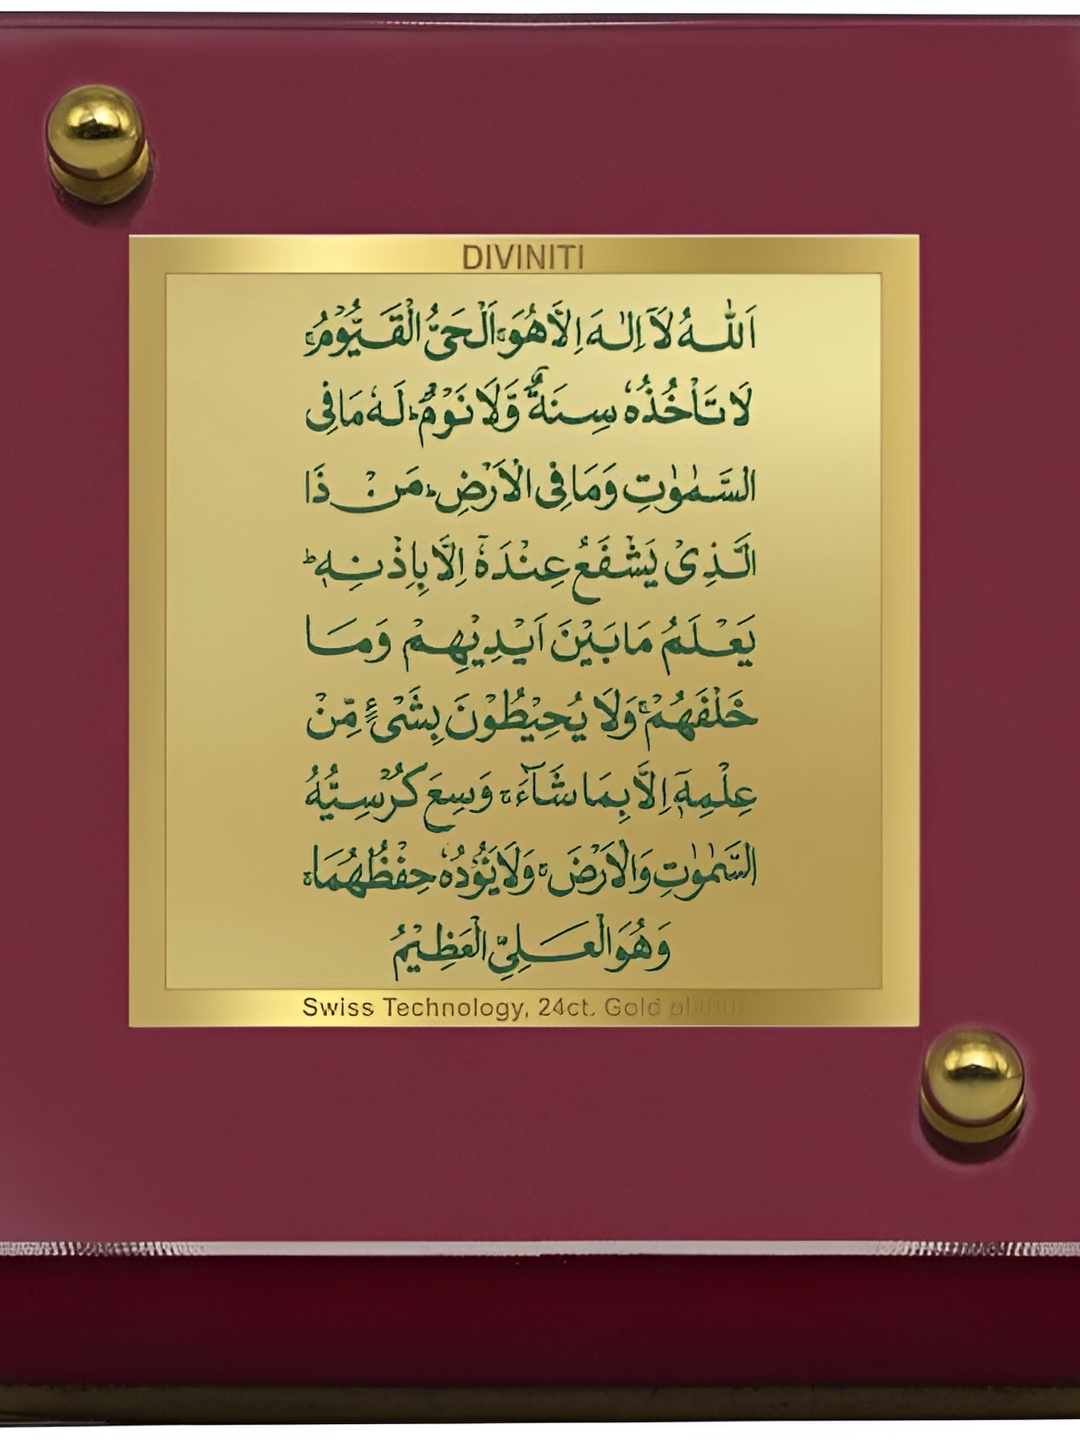 DIVINITI
اَللّٰهُ لَاۤ اِلٰهَ اِلَّا هُوَۚ اَلْحَیُّ الْقَیُّوْمُ ۚ
لَا تَاْخُذُهٗ سِنَةٌ وَّلَا نَوْمٌ ؕ لَهٗ مَا فِی
السَّمٰوٰتِ وَمَا فِی الْاَرْضِ ؕ مَنْ ذَا
الَّذِیْ یَشْفَعُ عِنْدَهٗۤ اِلَّا بِاِذْنِهٖ ؕ
یَعْلَمُ مَا بَیْنَ اَیْدِیْهِمْ وَمَا
خَلْفَهُمْ ۚ وَلَا یُحِیْطُوْنَ بِشَیْءٍ مِّنْ
عِلْمِهٖۤ اِلَّا بِمَا شَآءَ ۚ وَسِعَ كُرْسِیُّهُ
السَّمٰوٰتِ وَالْاَرْضَ ۚ وَلَا یَـُٔوْدُهٗ حِفْظُهُمَا ۚ
وَهُوَ الْعَلِیُّ الْعَظِیْمُ
Swiss Technology, 24ct. Gold